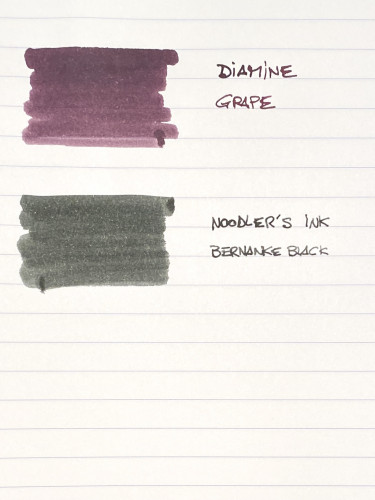 DIAMINE
GRAPE
NOODLER'S INK
BERNANKE BLACK